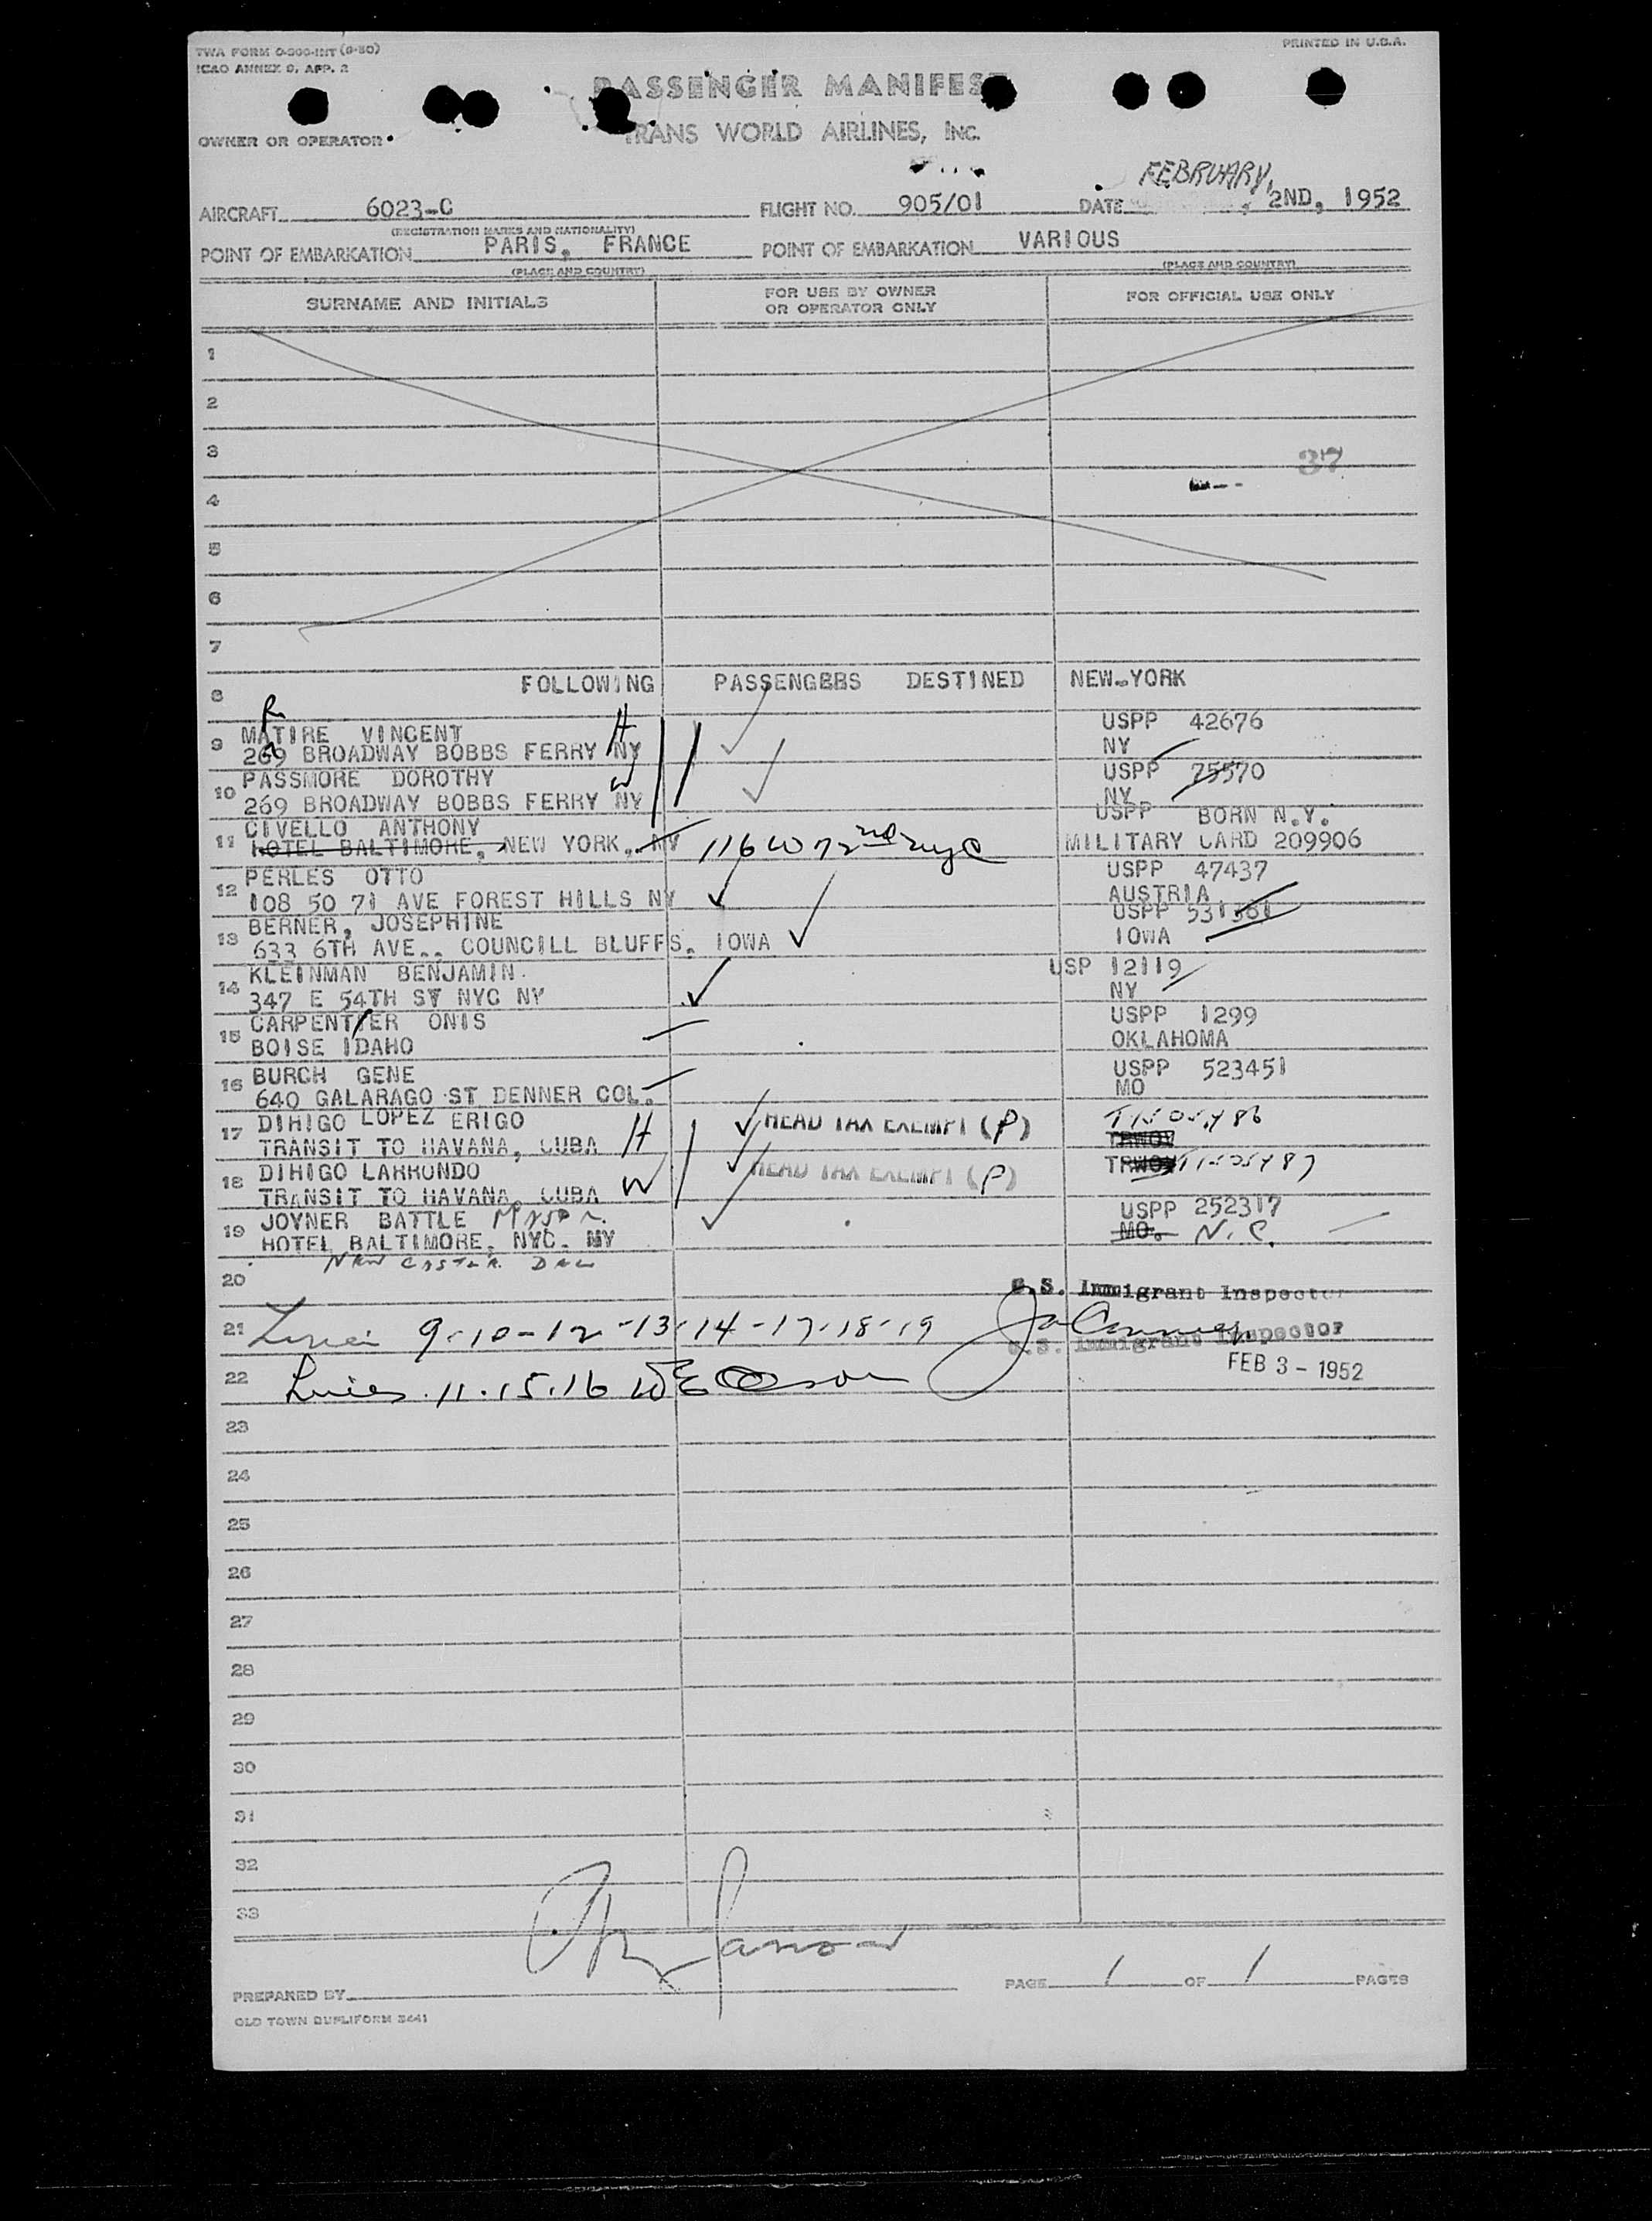 TWA FORM O-300-INT (8-50)
PRINTED IN U.S.A.
ICAO ANNEX 9, APP. 2
PASSENGER MANIFEST
OWNER OR OPERATOR
TRANS WORLD AIRLINES, INC.
FEBRUARY,
AIRCRAFT 6023-C FLIGHT NO. 905/01 DATE 2ND, 1952
(REGISTRATION MARKS AND NATIONALITY)
POINT OF EMBARKATION PARIS, FRANCE POINT OF EMBARKATION VARIOUS
(PLACE AND COUNTRY) (PLACE AND COUNTRY)
SURNAME AND INITIALS FOR USE BY OWNER OR OPERATOR ONLY FOR OFFICIAL USE ONLY
1
2
3
37
4
5
6
7
8 FOLLOWING PASSENGBBS DESTINED NEW-YORK
R
9 MATIRE VINCENT H USPP 42676
269 BROADWAY BOBBS FERRY NY NY
10 PASSMORE DOROTHY W USPP 75570
269 BROADWAY BOBBS FERRY NY NY
11 CIVELLO ANTHONY USPP BORN N.Y.
HOTEL BALTIMORE, NEW YORK, NY 116 W 72nd NYC MILITARY CARD 209906
12 PERLES OTTO USPP 47437
108 50 71 AVE FOREST HILLS NY AUSTRIA
13 BERNER, JOSEPHINE USPP 531381
633 6TH AVE.. COUNCILL BLUFFS, IOWA IOWA
14 KLEINMAN BENJAMIN. USP 12119
347 E 54TH ST NYC NY NY
15 CARPENTIER ONIS USPP 1299
BOISE IDAHO OKLAHOMA
16 BURCH GENE USPP 523451
640 GALARAGO ST DENNER COL. MO
17 DIHIGO LOPEZ ERIGO H HEAD TAX EXEMPT (P)
TRANSIT TO HAVANA, CUBA TRWOV
18 DIHIGO LARRONDO W HEAD TAX EXEMPT (P) TRWOV
TRANSIT TO HAVANA, CUBA
19 JOYNER BATTLE USPP 252317
HOTEL BALTIMORE, NYC. NY MO. N.C.
NEW CASTLE DEL
20 U.S. Immigrant Inspector
21 9-10-12-13-14-17-18-19
U.S. Immigrant Inspector
FEB 3 - 1952
22 11.15.16
23
24
25
26
27
28
29
30
31
32
33
PREPARED BY PAGE 1 OF 1 PAGES
OLD TOWN DUPLIFORM 3441